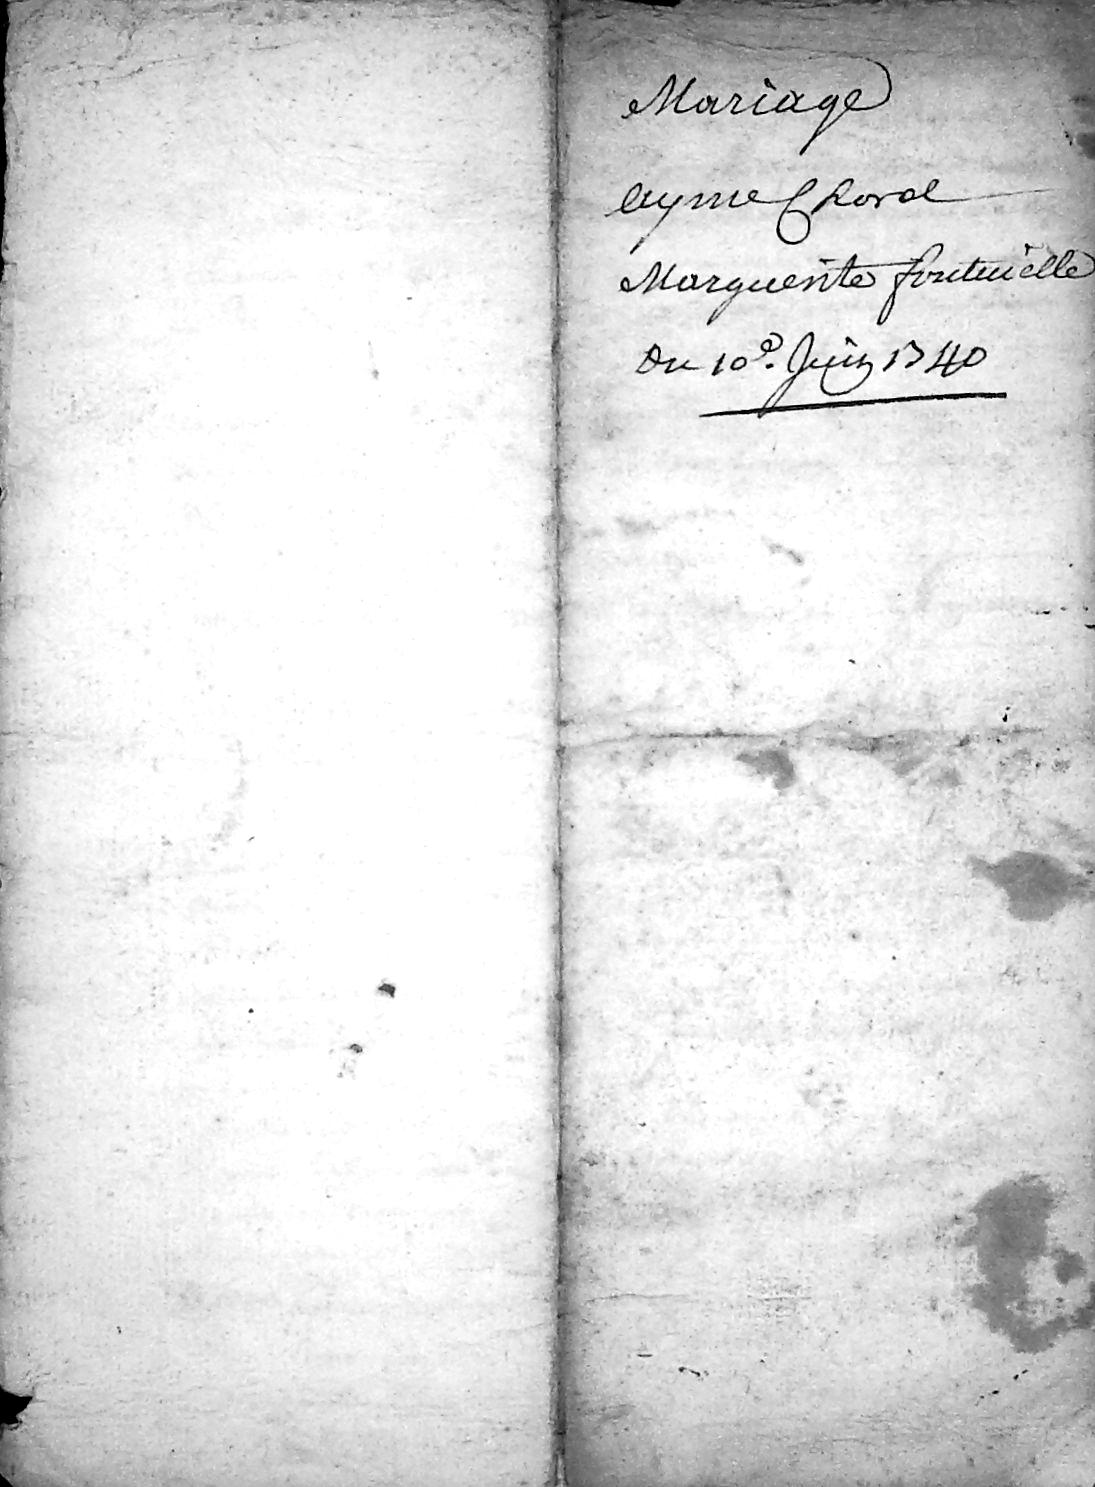 Mariage
Ayme Chorel
Marguerite fontuielle
Du 10e. Juin 1740